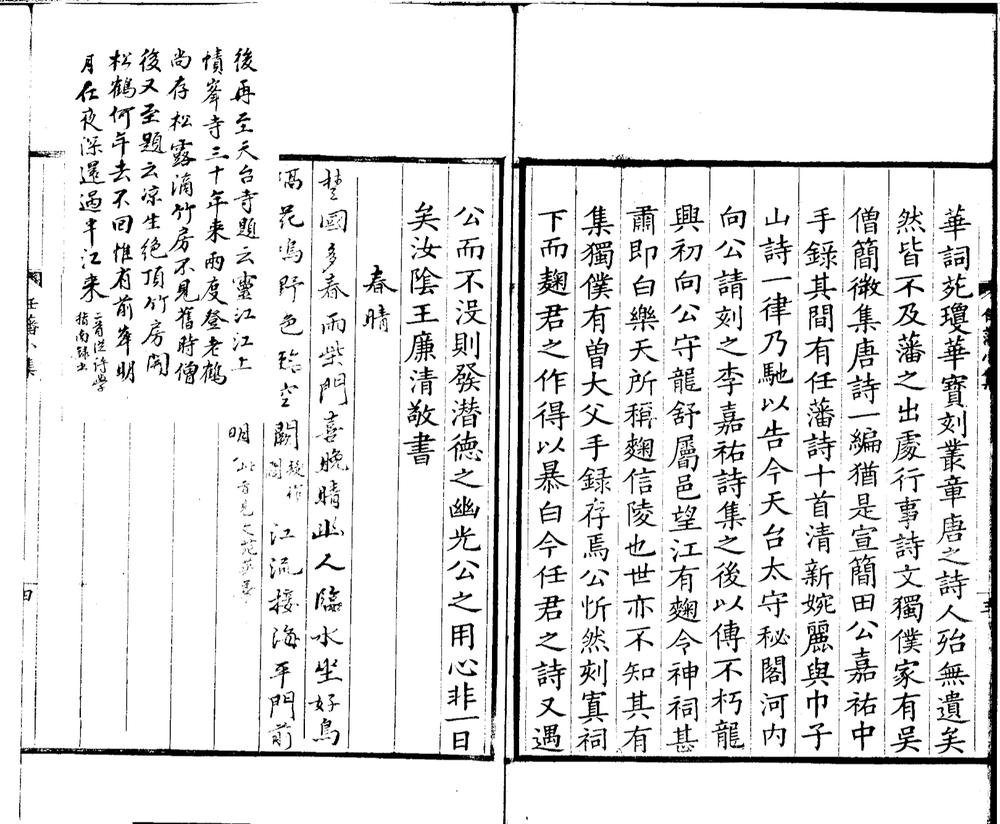 華詞苑瓊華寶刻叢章唐之詩人殆無遺矣
然皆不及藩之出處行事詩文獨僕家有吴
僧簡徵集唐詩一編猶是宣簡田公嘉祐中
手錄其間有任藩詩十首清新婉麗與巾子
山詩一律乃馳以告今天台太守秘閣河内
向公請刻之李嘉祐詩集之後以傳不朽龍
興初向公守龍舒屬邑望江有麴令神祠甚
肅即白樂天所稱麴信陵也世亦不知其有
集獨僕有曽大父手録存焉公忻然刻寘祠
下而麴君之作得以暴白今任君之詩又遇
公而不没則發潜德之幽光公之用心非一日
矣汝陰王廉清敬書
春晴
楚國多春雨柴門喜晚晴幽人臨水坐好鳥
隔花鳴野色臨空闊江流接海平門前
明
後再至天台寺題云靈江江上
幘峯寺三十年来兩度登老鶴
尚存松露滴竹房不見舊時僧
後又至題云凉生絶頂竹房開
松鶴何年去不回惟有前峯明
月在夜深還過半江来
任藩小集
四